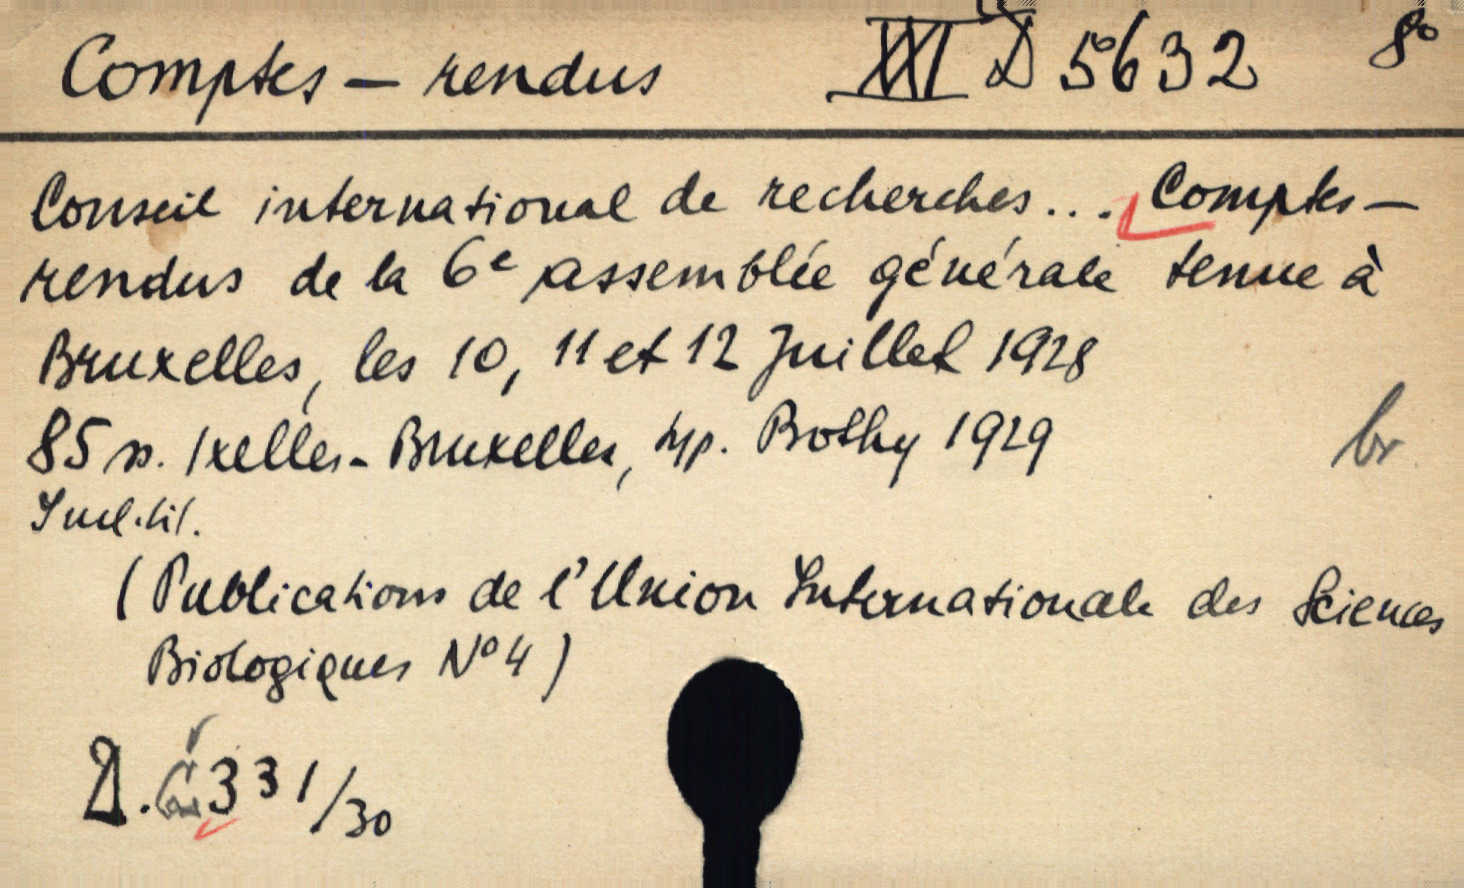 Comptes – rendus XXI D 5632 8°
Conseil international de recherches... Comptes –
rendus de la 6e assemblée générale tenue à
Bruxelles, les 10, 11 et 12 Juillet 1928
85 p. Ixelles - Bruxelles, typ. Bothy 1929 br
(Publications de l'Union Internationale des Sciences
Biologiques N° 4)
D. 331/30